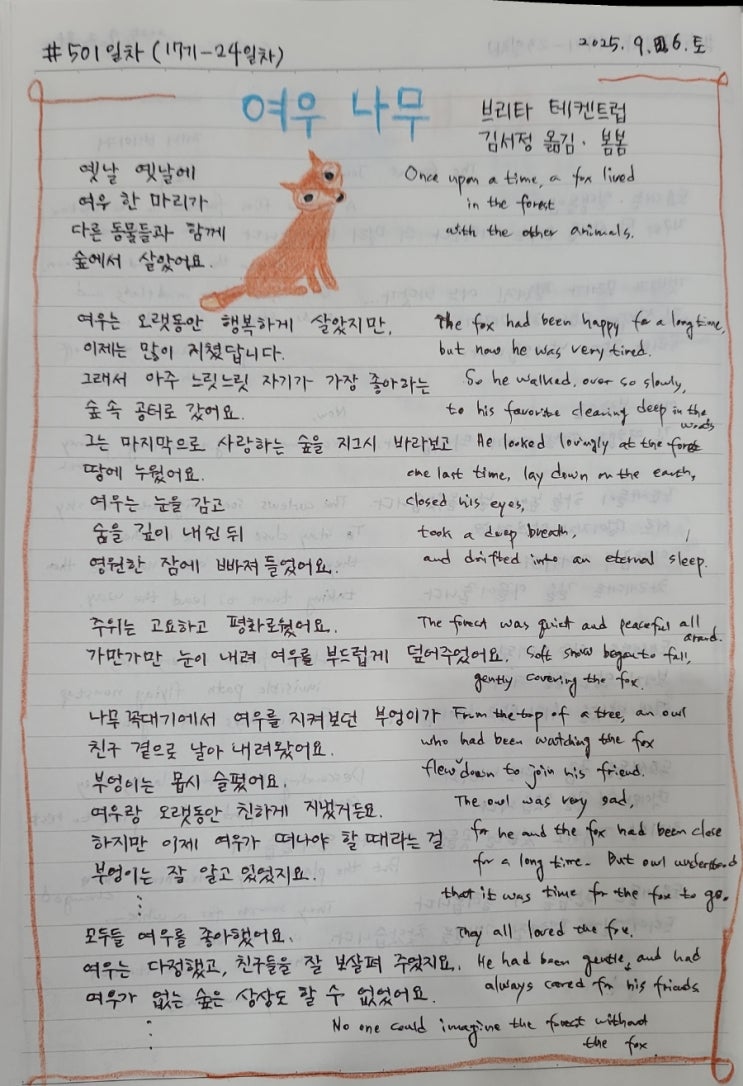 #501일차 (17기-24일차)
2025. 9. 6. 토
여우 나무
브리타 테켄트럽
김서정 옮김 · 봄봄
옛날 옛날에
여우 한 마리가
다른 동물들과 함께
숲에서 살았어요.
Once upon a time, a fox lived
in the forest
with the other animals.
여우는 오랫동안 행복하게 살았지만,
The fox had been happy for a long time,
이제는 많이 지쳤답니다.
but now he was very tired.
그래서 아주 느릿느릿 자기가 가장 좋아하는
So he walked, over so slowly,
숲 속 공터로 갔어요.
to his favorite clearing deep in the
woods
그는 마지막으로 사랑하는 숲을 지그시 바라보고
He looked lovingly at the forest
땅에 누웠어요.
one last time, lay down on the earth,
여우는 눈을 감고
closed his eyes,
숨을 깊이 내쉰 뒤
took a deep breath,
영원한 잠에 빠져 들었어요.
and drifted into an eternal sleep.
주위는 고요하고 평화로웠어요.
The forest was quiet and peaceful all
around.
가만가만 눈이 내려 여우를 부드럽게 덮어주었어요.
Soft snow began to fall,
gently covering the fox.
나무 꼭대기에서 여우를 지켜보던 부엉이가
From the top of a tree, an owl
친구 곁으로 날아 내려왔어요.
who had been watching the fox
부엉이는 몹시 슬펐어요.
flew down to join his friend.
여우랑 오랫동안 친하게 지냈거든요.
The owl was very sad,
하지만 이제 여우가 떠나야 할 때라는 걸
for he and the fox had been close
부엉이는 잘 알고 있었지요.
for a long time. But owl understood
that it was time for the fox to go.
⋮
모두들 여우를 좋아했어요.
They all loved the fox.
여우는 다정했고, 친구들을 잘 보살펴 주었지요.
He had been gentle, and had
여우가 없는 숲은 상상도 할 수 없었어요.
always cared for his friends
⋮
No one could imagine the forest without
the fox